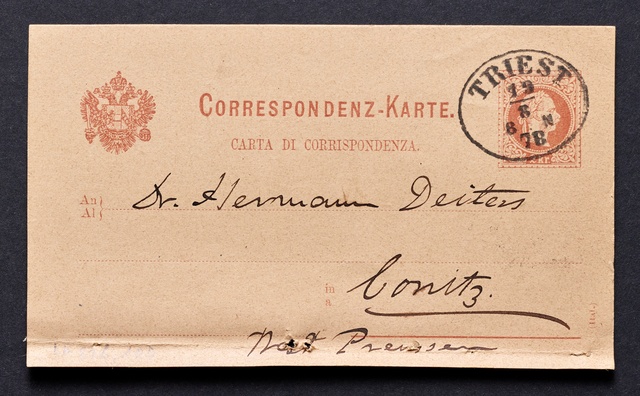 CORRESPONDENZ-KARTE.
CARTA DI CORRISPONDENZA.
TRIEST
19
8
6 N
78
An
Al
Dr. Hermann Deiters
in
a
Conitz.
West Preussen
(Ital.)